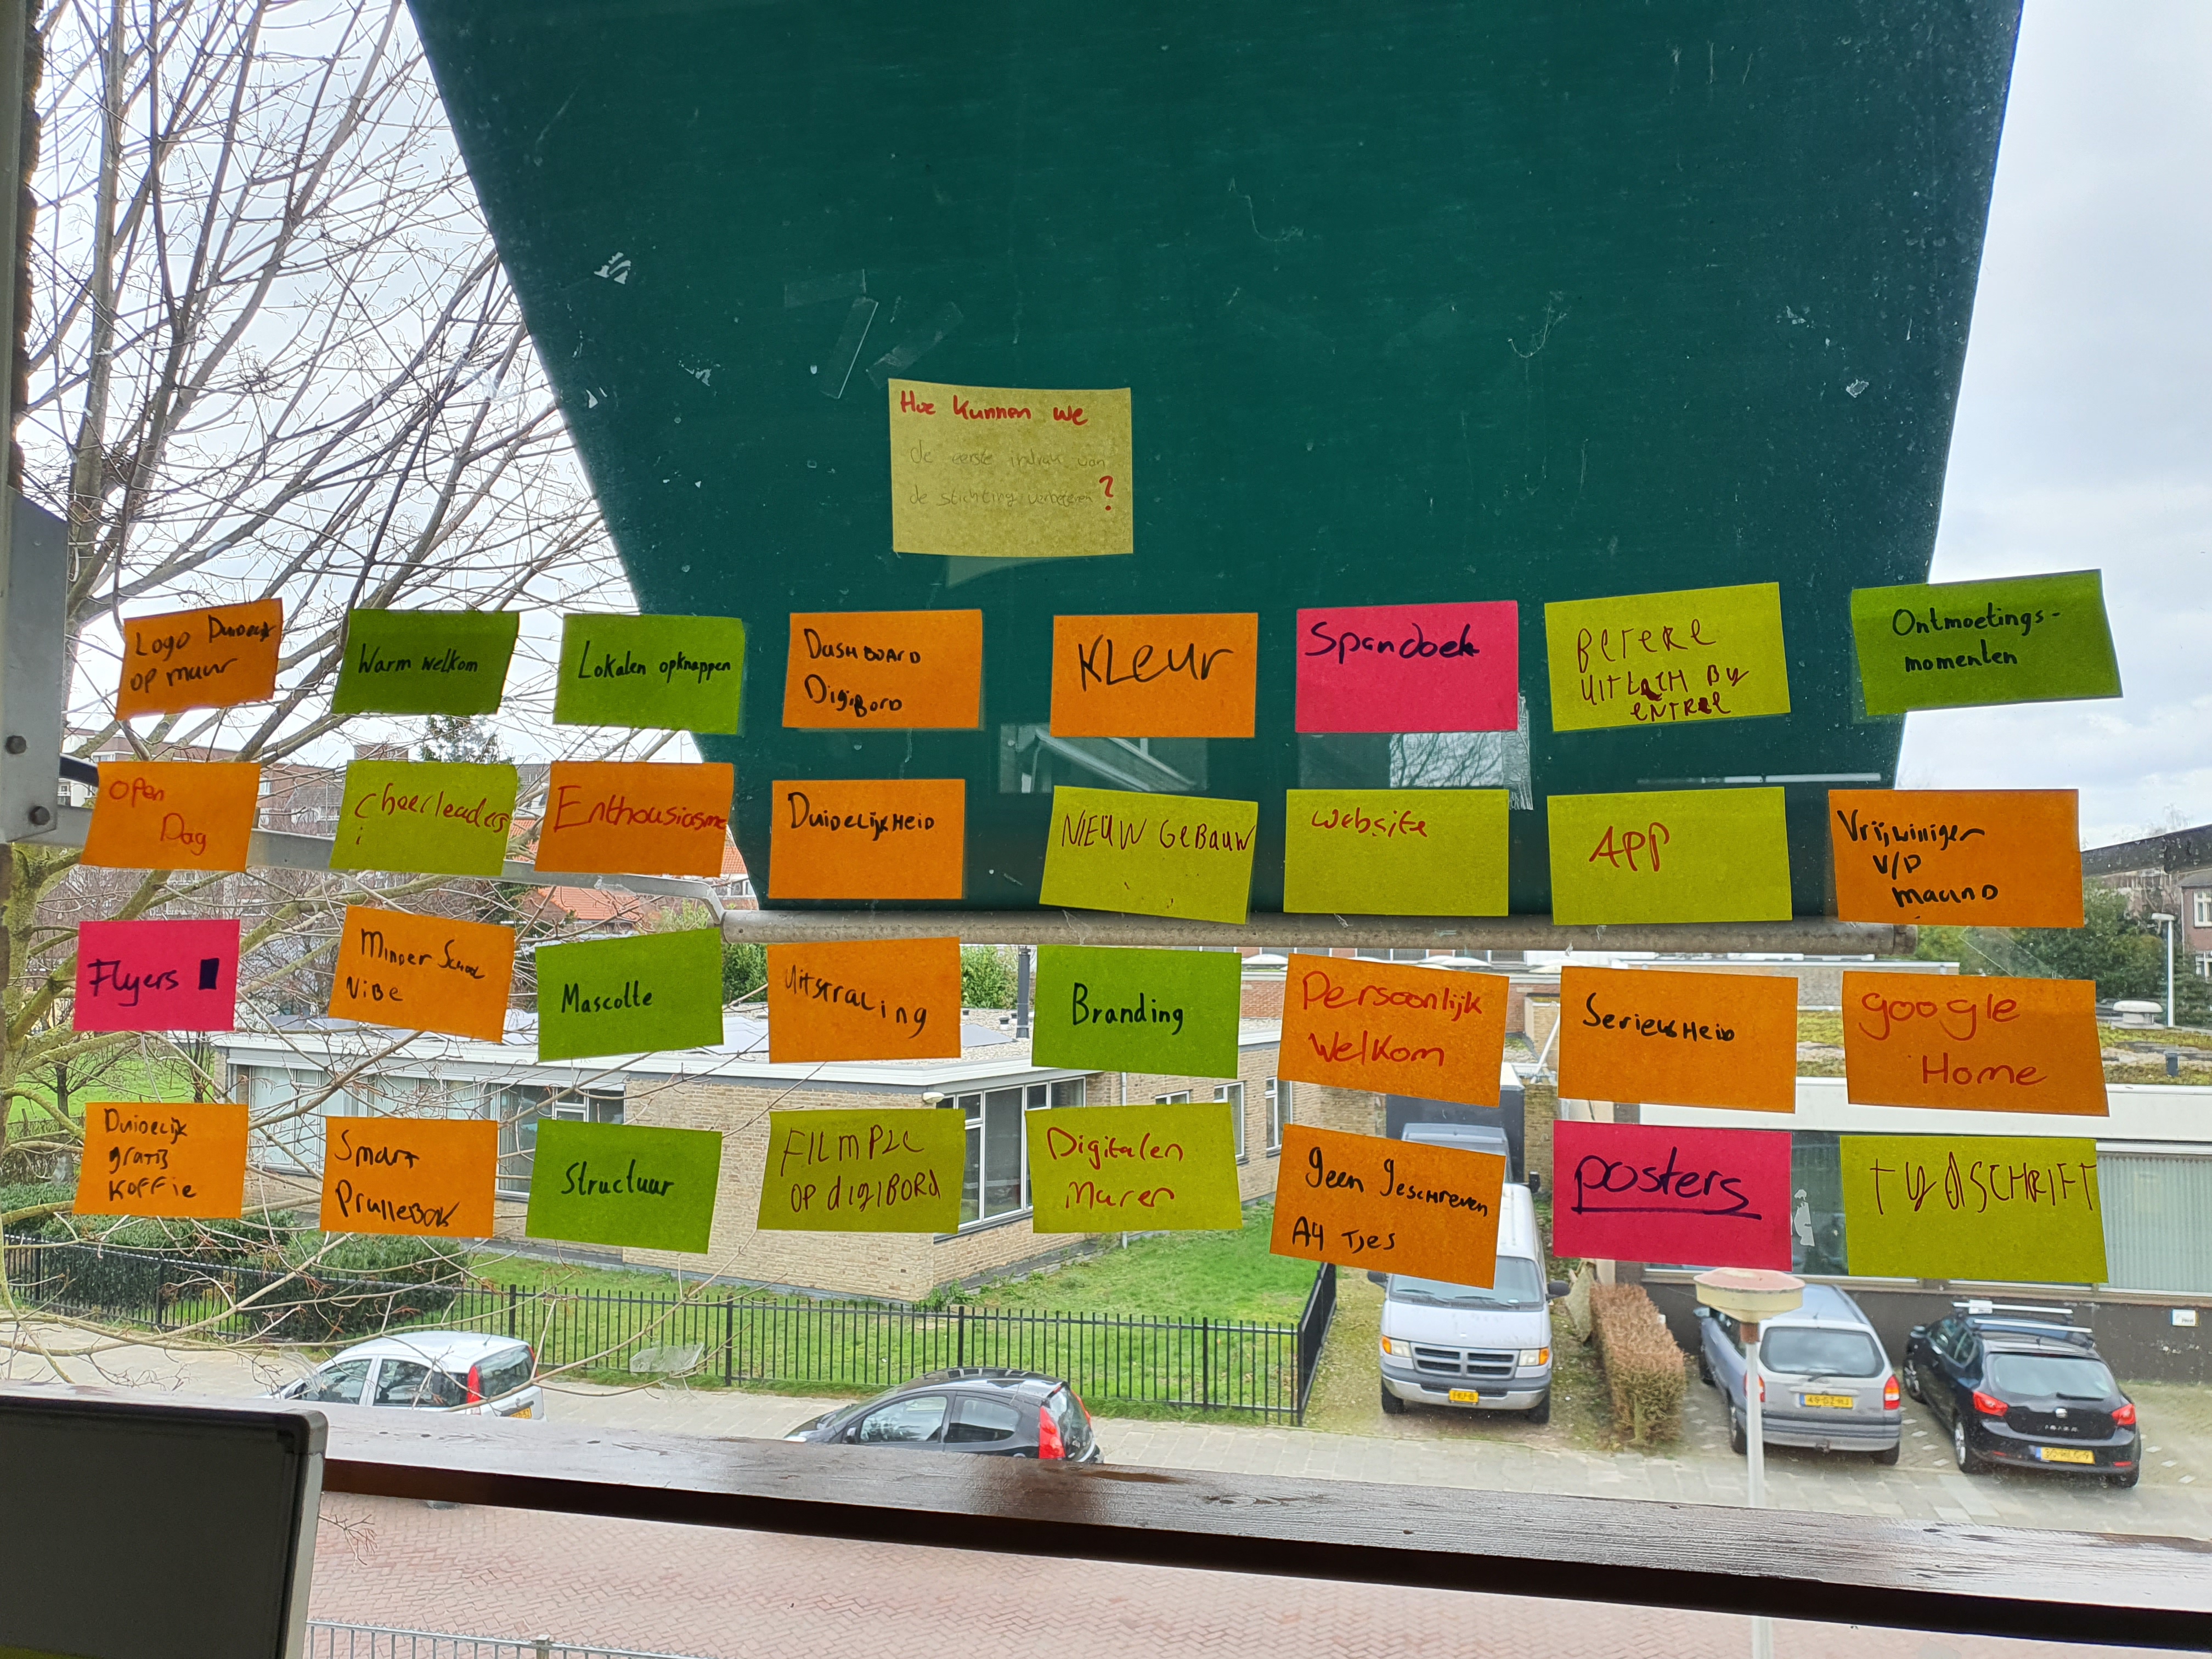 Hoe kunnen we
de eerste indruk van
de stichting verbeteren ?
Logo Duidelijk
op muur
Warm welkom
Lokalen opknappen
DASHBOARD
DigiBord
KLeur
Spandoek
BETERE
UITLATH BY
ENTREE
Ontmoetings-
momenten
open
Dag
Cheerleaders
Enthousiasme
DuidelijkHeid
NIEUW GEBAUW
website
APP
Vrijwiniger
V/D
maand
Flyers
Minder School
ViBe
Mascotte
Uitstraling
Branding
Persoonlijk
Welkom
SerieusHeid
google
Home
Duidelijk
gratis
koffie
Smart
PrulleBak
Structuur
FILMPZE
OP digiBORd
Digitalen
Muren
geen geschreven
A4 Tjes
posters
TYDSCHRIFT